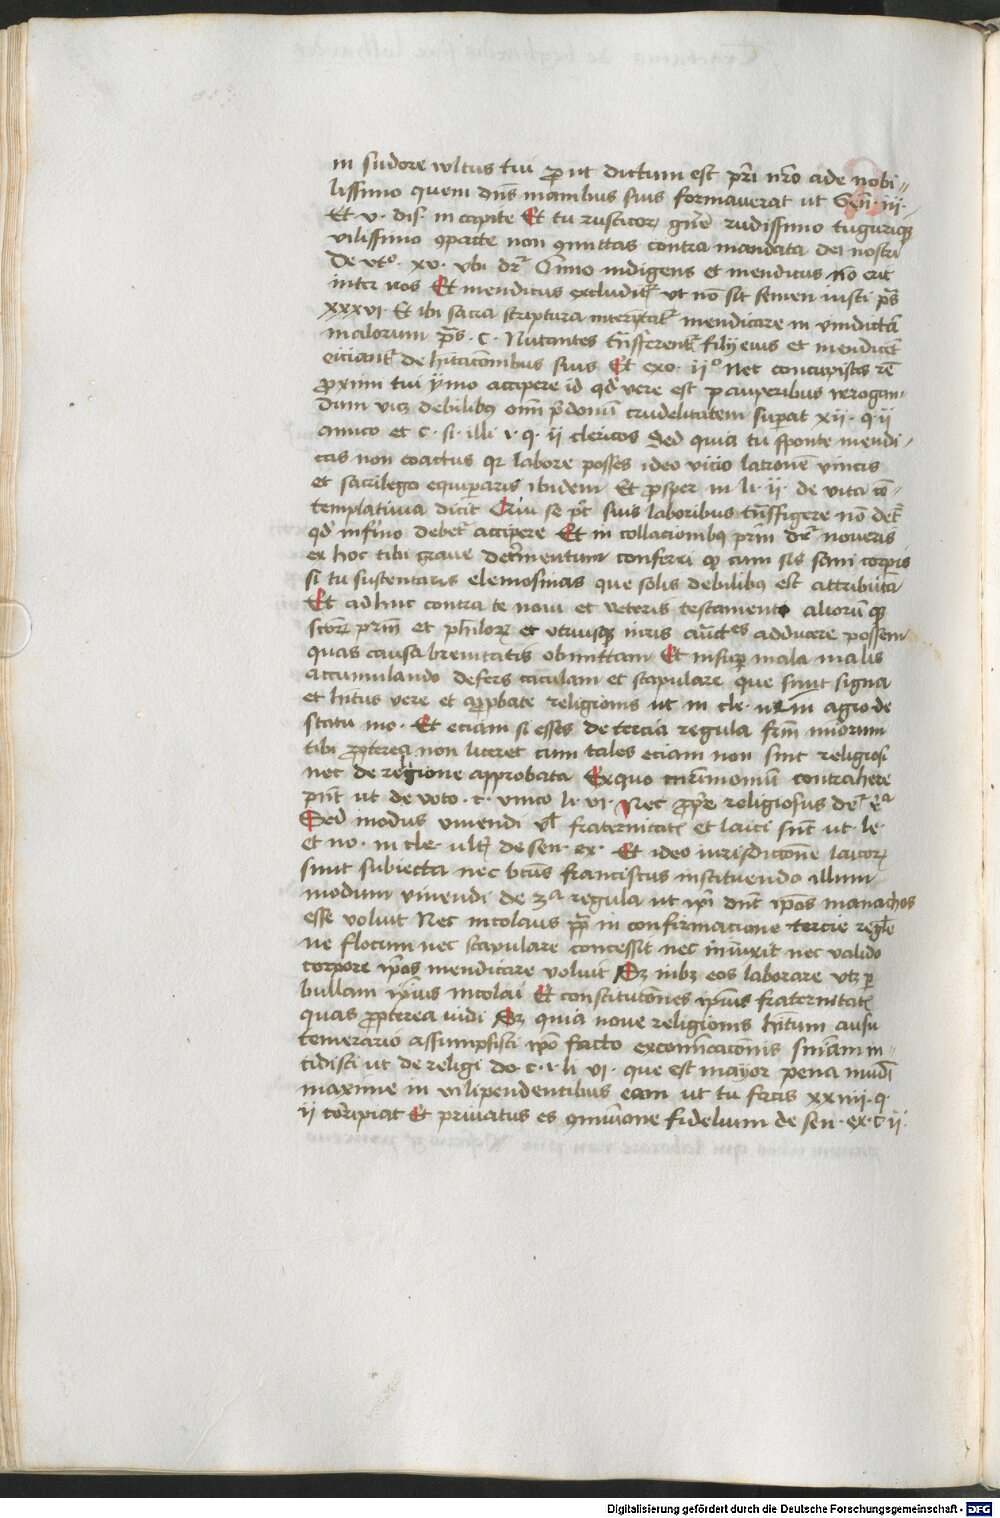 in sudore wltus tui prout dictum est pri nro ade nobi-
lissimo quem dns manibus suis formaverat ut Gen. iii.
Et v. dis. in capite Et tu rusticor gne rudissimo tuguriiqz
vilissimo parte non qmittas contra mandata dei nostri
De vto. xv. vbi dr Omno indigens et mendicus no erit
inter vos Et mendicus excludit ut no sit semen iusti ps
xxxvi. Et ibi sacra scriptura interptat mendicare in vindicta
malorum ps. C. Nutantes tnsferent filij eius et mendicet
eiciant de hitacionibus suis Et exo. ii Nec concupisces re
proximi tui ymo accipere id qd vere est pauperibus errogan-
dum vicz debilibz omi pdonu crudelitatem superat xii. q. ii
amico et c. si. illi i. q. ii clericos Sed quia tu sponte mendi-
cas non coactus qr labore posses ideo vicio latrone vincis
et sacrilego equiparis ibidem Et prosper in li. ii. de vita co-
templativa dicit Qui se pt suis laboribus tnsfigere no det
qd infirmo debet accipere Et in collacionibz prim dr noveris
ex hoc tibi grave detrimentum conferri qp cum sis sani corpis
si tu sustentaris elemosinas que solis debilibz est attributa
Et adhuc contra te novi et veteris testamento aliorumqz
sctor prim et philor et utriusqz iuris auctes adducere possem
quas causa brevitatis obmittam Et insup mala malis
accumulando defers caculam et scapulare que sunt signa
et hitus vere et approbate religionis ut in cle. agro de
statu mo. Et eciam si esses de tercia regula frm minorum
tibi propterea non liceret cum tales eciam non sint religiosi
nec de religione approbata Exquo matrimoniu contrahere
pnt ut de voto. c. vnico li. vi. Nec prope religiosus
Sed modus vivendi vl fraternitatis et laici snt ut. le.
et no. in cle. de sen. ex. Et ideo iurisdictione laicor
sunt subiecta nec btus franciscus instituendo illum
modum vivendi de 3a regula ut ipi dnt ipos manachos
esse voluit Nec nicolaus pp in confirmacione tercie regle
ne flocum nec scapulare concessit nec iniunxit nec valido
corpore ipos mendicare voluit Sz iubz eos laborare vtz p
bullam ipius nicolai Et constitutiones ipius fraternitatis
quas propterea vidi Sz quia nove religionis hitum ausu
temerario assumpsisti ipo facto excomicacionis sniam in-
cidisti ut de religi do. c. i. li vi. que est mayor pena mudi
maxime in vilipendentibus eam ut tu facis xxiiii. q.
ii corripiat Et privatus es qmunione fidelium de sen. ex. c ii.
Digitalisierung gefördert durch die Deutsche Forschungsgemeinschaft - DFG